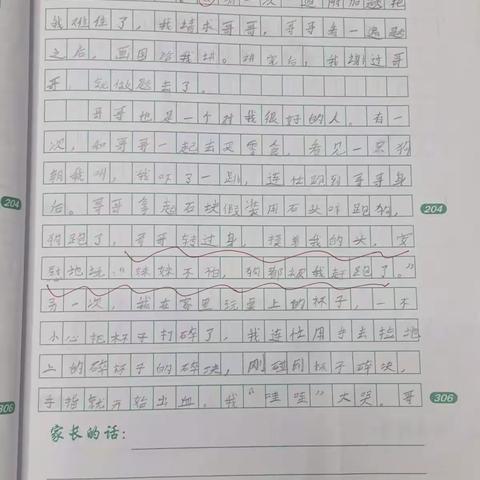 我难住了，我请求哥哥，哥哥看一遍题
之后，画图给我讲。讲完后，我谢过哥
哥，就做题去了。
哥哥也是一个对我很好的人。有一
次，和哥哥一起去买零食，看见一只狗
朝我叫，我吓了一跳，连忙跑到哥哥身
后。哥哥拿起石块假装用石头吓跑狗，
狗跑了，哥哥转过身，摸着我的头，安
慰地说：“妹妹不怕，狗都被我赶跑了。”
204
204
另一次，我在家里玩桌上的杯子，一不
小心把杯子打碎了，我连忙用手去捡地
上的碎杯子的碎块，刚碰到杯子碎块，
手指就开始出血，我“哇哇”大哭。哥
306
306
家长的话：